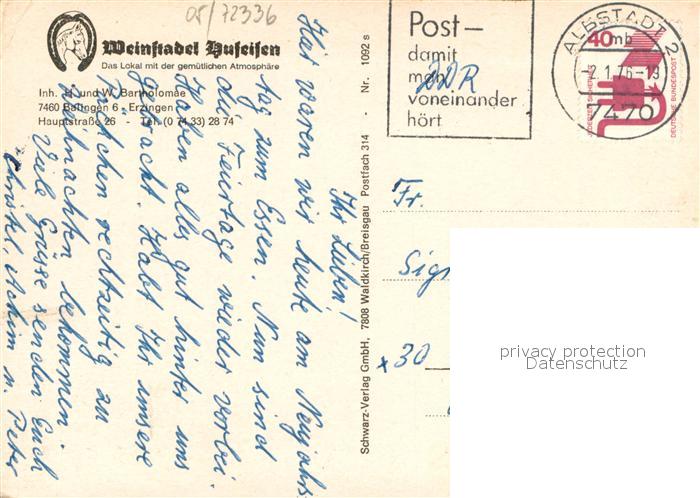 05/72336
Weinstadel Hufeisen
Das Lokal mit der gemütlichen Atmosphäre
Inh. H. und W. Bartholomäe
7460 Balingen 6 - Erzingen
Hauptstraße 26 - Tel. (0 74 33) 28 74
Ihr Lieben!
Hat waren wir heute am Neujahrs
tag zum Essen. Nun sind
die Feiertage wieder vorbei.
Haben alles gut hinter uns
gebracht. Habt Ihr unsere
Päckchen rechtzeitig zu
Weihnachten bekommen.
Viele Grüsse senden Euch
Christel, Achim u. Peter
Schwarz-Verlag GmbH, 7808 Waldkirch/Breisgau Postfach 314 - Nr. 1092 s
Post –
damit
man
voneinander
hört
DDR
ALBSTADT 2
1.76-19
7470
40
JEDERZEIT SICHERHEIT
DEUTSCHE BUNDESPOST
Fr.
Sig
x 30
privacy protection
Datenschutz